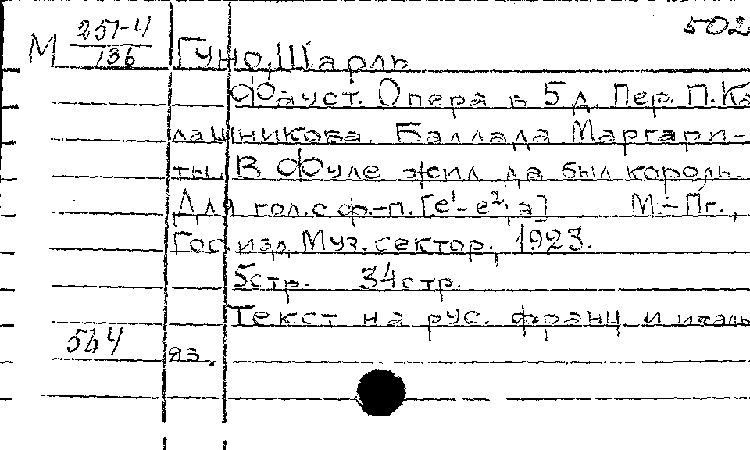 502
М 257-4/136 Гуно, Шарль
Фауст. Опера в 5 д. Пер. П. Ка-
лашникова. Баллада Маргари-
ты. В Фуле жил да был король.
Для гол. с ф.-п. [e¹-e²; a] М.-Пг.,
Гос. изд. Муз. сектор, 1923.
5 стр. 34 стр.
Текст на рус. франц. и италь
564 яз.